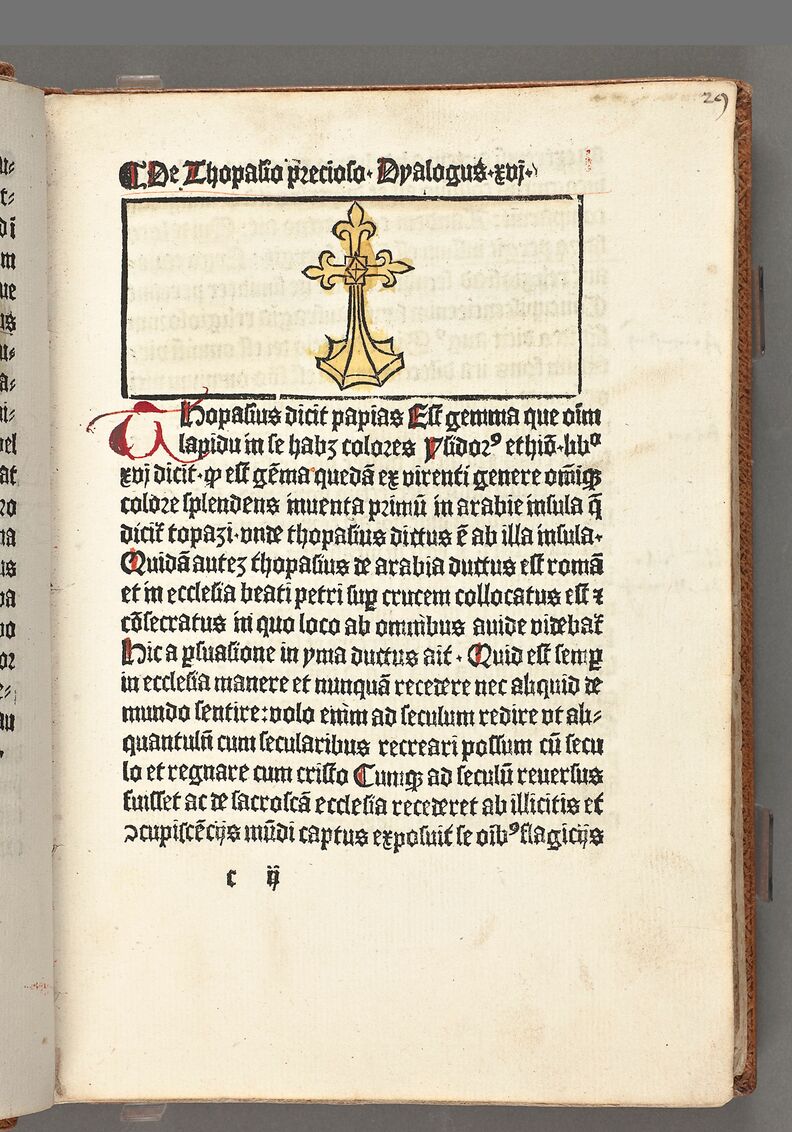 29
De Thopasio precioso· Dyalogus·xvj·
Thopasius dicit papias Est gemma que oīm
lapidū in se habꝫ colores ysidorꝰ ethiō·libᵒ
xvj dicit·ꝙ est gēma quedā ex virenti genere omīqꝫ
colore splendens inuenta primū in arabie insula q̄
dicit᷑ topazi·vnde thopasius dictus ē ab illa insula·
Quidā autez thopasius de arabia ductus est romā
et in ecclesia beati petri suꝑ crucem collocatus est ⁊
cōsecratus in quo loco ab omnibus auide videbat᷑
Hic a ꝑsuasione in yma ductus ait· Quid est semꝑ
in ecclesia manere et nunquā recedere nec aliquid de
mundo sentire:volo enim ad seculum redire vt ali⸗
quantulū cum secularibus recreari possum cū secu
lo et regnare cum cristo Cumqꝫ ad seculū reuersus
fuisset ac de sacroscā ecclesia recederet ab illicitis et
ↄcupiscēcijs mūdi captus exposuit se oīb⁹ flagicijs
c ij